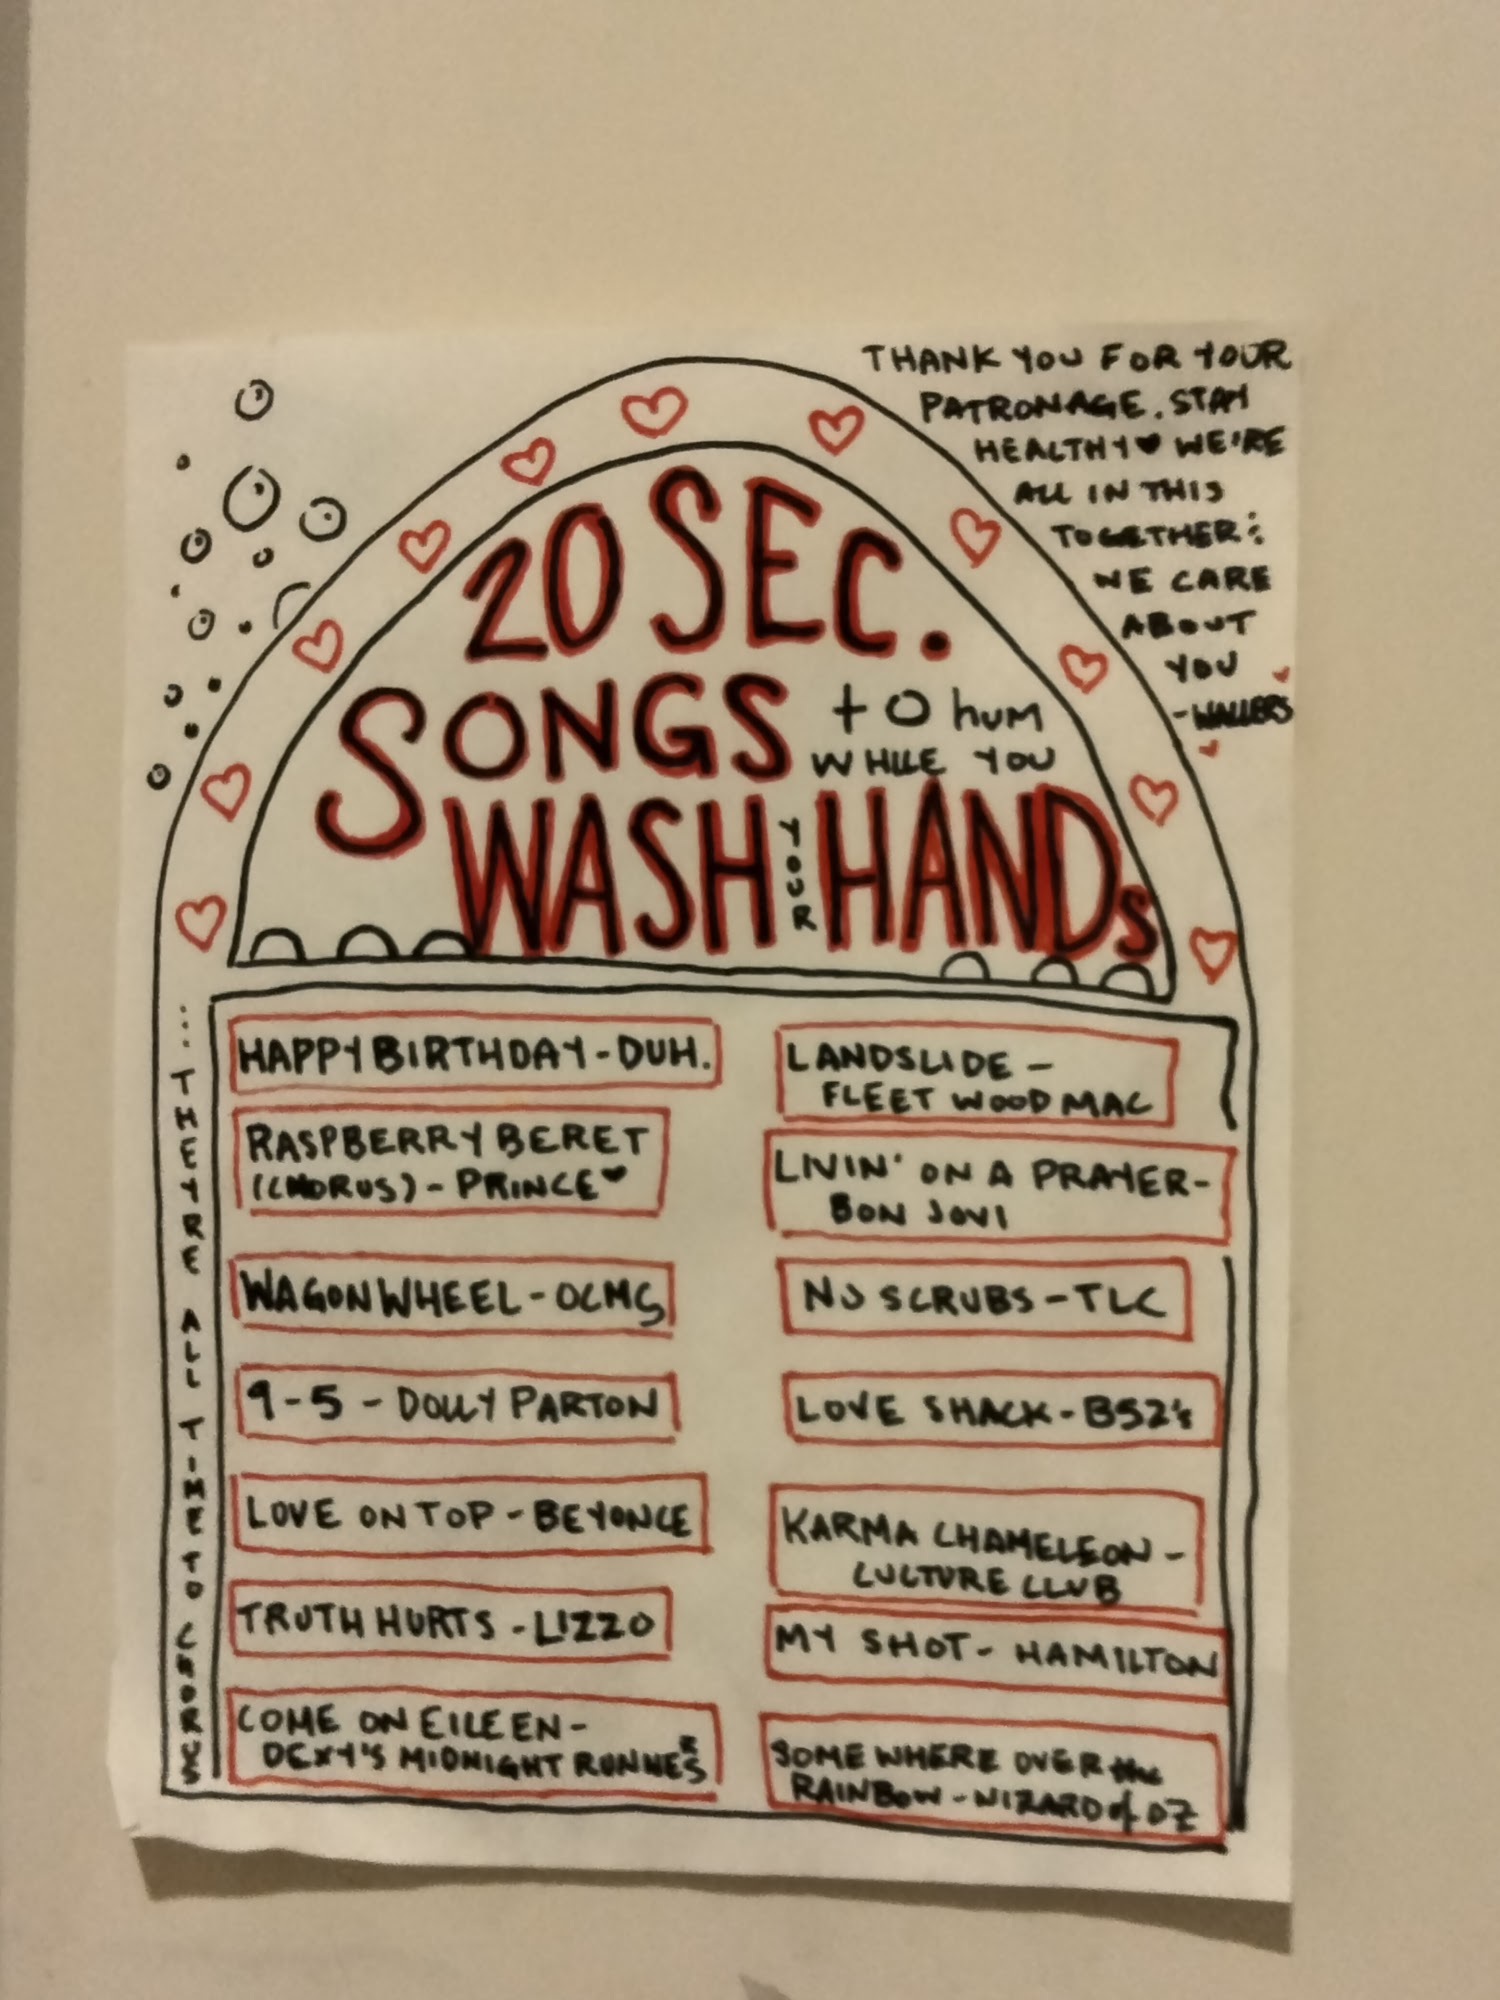 THANK YOU FOR YOUR
PATRONAGE. STAY
HEALTHY♥ WE'RE
ALL IN THIS
TOGETHER:
WE CARE
ABOUT
YOU
-WALLERS
20 SEC.
SONGS to hum
WHILE YOU
WASH YOUR HANDS
...THEYRE ALL TIME TO CHORUS
HAPPY BIRTHDAY - DUH.
RASPBERRY BERET
(CHORUS) - PRINCE♥
WAGON WHEEL - OCMS
9-5 - DOLLY PARTON
LOVE ON TOP - BEYONCE
TRUTH HURTS - LIZZO
COME ON EILEEN -
DEXY'S MIDNIGHT RUNNERS
LANDSLIDE -
FLEET WOOD MAC
LIVIN' ON A PRAYER -
BON JOVI
NO SCRUBS - TLC
LOVE SHACK - B52's
KARMA CHAMELEON -
CULTURE CLUB
MY SHOT - HAMILTON
SOME WHERE OVER the
RAINBOW - WIZARD of OZ